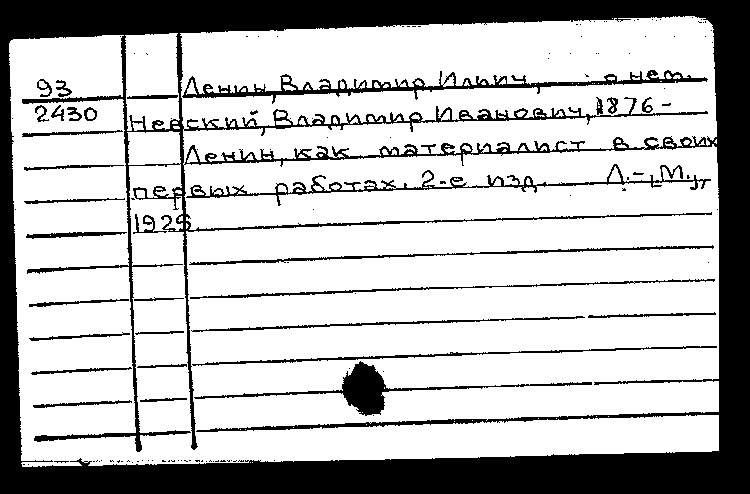 93 Ленин, Владимир Ильич, о нем.
2430 Невский, Владимир Иванович, 1876-
Ленин, как материалист в своих
первых работах. 2-е изд. Л.-[М.],
192